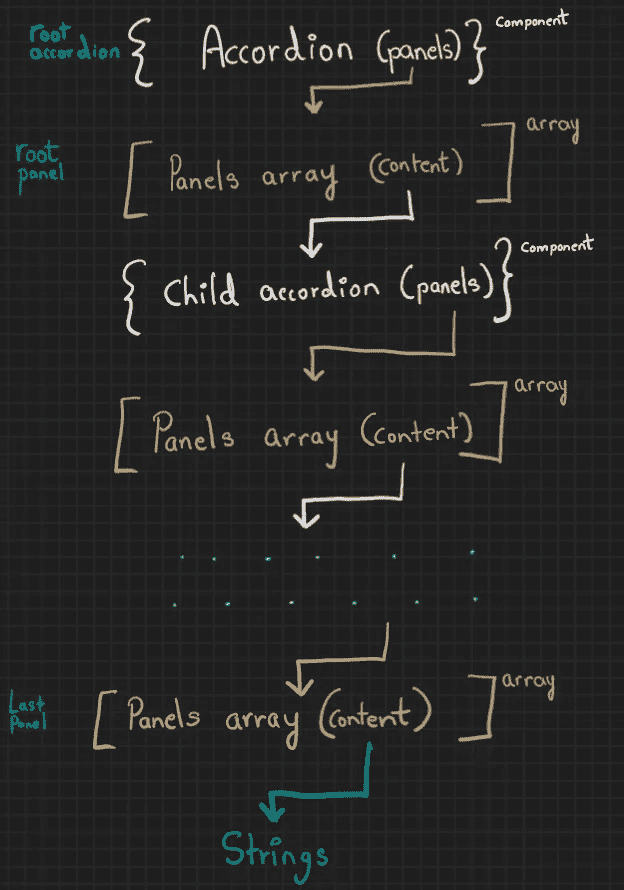 root
accordion
{ Accordion (panels) }
Component
root
panel
[ Panels array (content) ]
array
{ Child accordion (panels) }
Component
[ Panels array (content) ]
array
Last
Panel
[ Panels array (content) ]
array
Strings